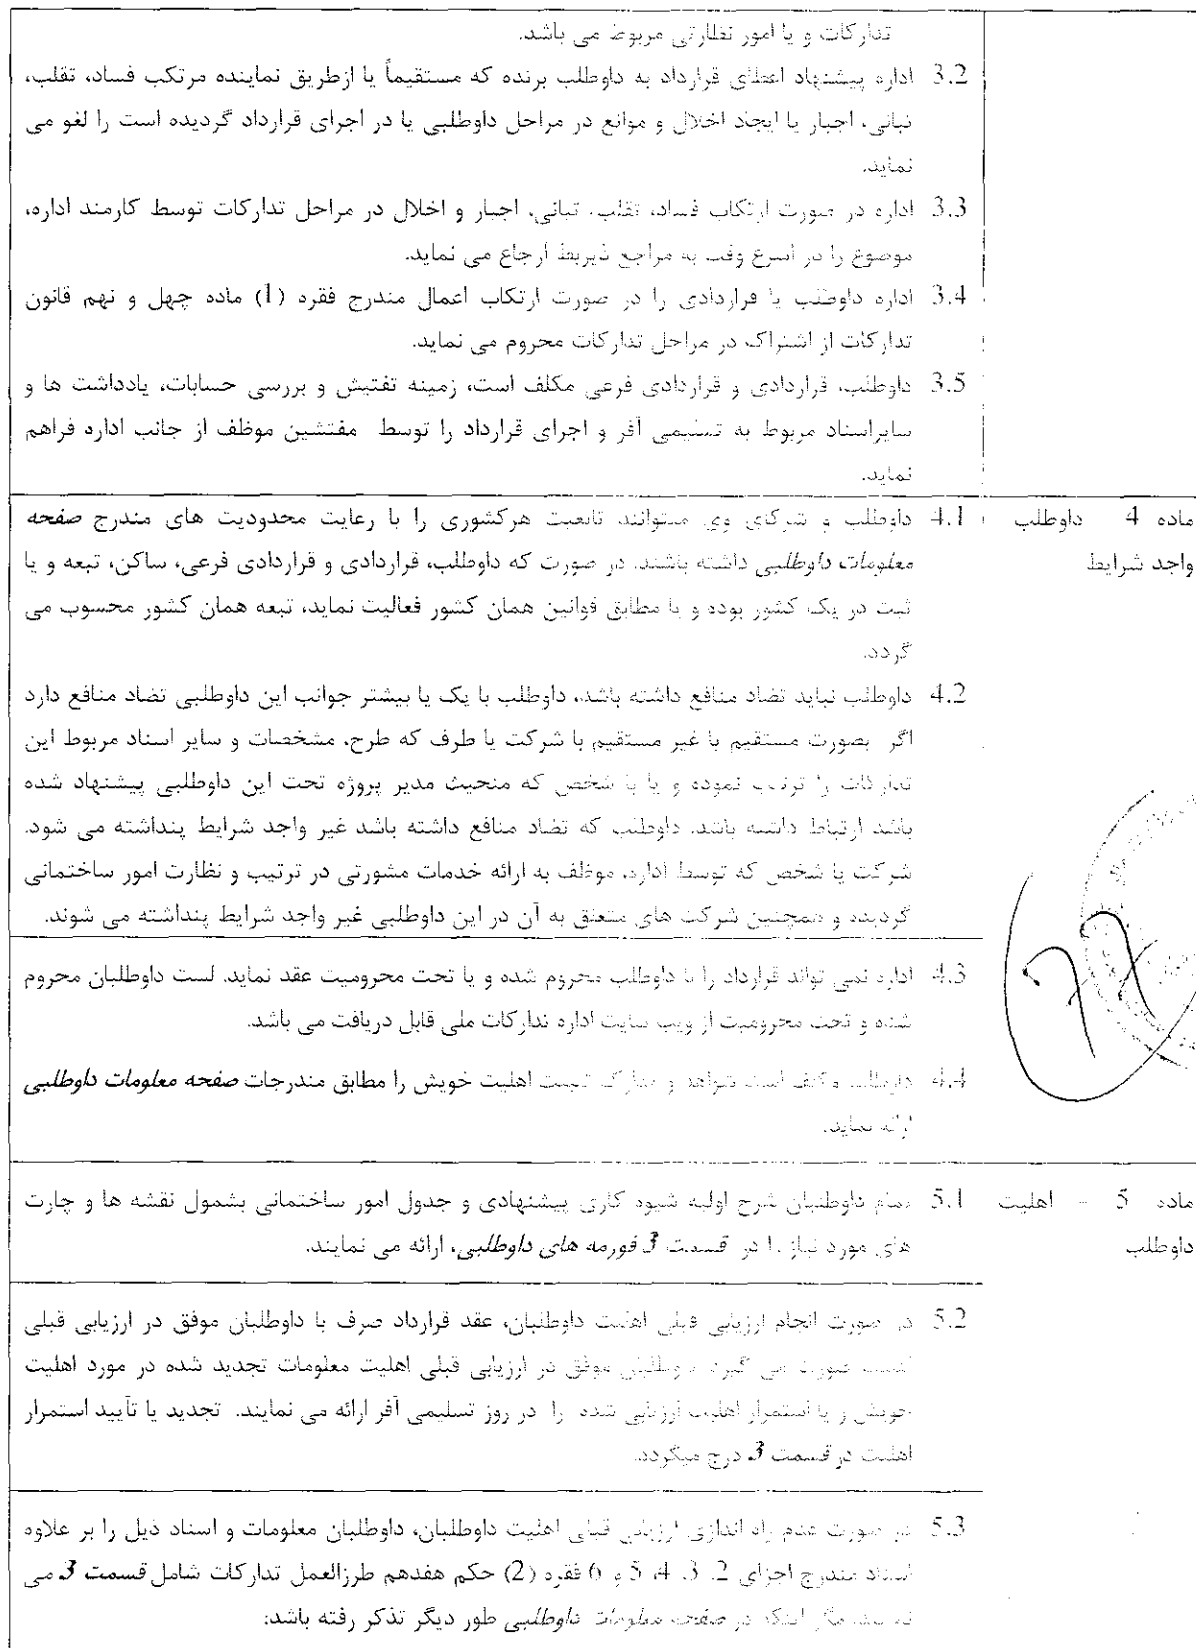 تدارکات و یا امور نظارتی مربوط می باشد.
3.2 اداره پیشنهاد اعطای قرارداد به داوطلب برنده که مستقیماً یا ازطریق نماینده مرتکب فساد، تقلب،
تبانی، اجبار یا ایجاد اخلال و موانع در مراحل داوطلبی یا در اجرای قرارداد گردیده است را لغو می
نماید.
3.3 اداره در صورت ارتکاب فساد، تقلب، تبانی، اجبار و اخلال در مراحل تدارکات توسط کارمند اداره،
موضوع را در اسرع وقت به مراجع ذیربط ارجاع می نماید.
3.4 اداره داوطلب یا قراردادی را در صورت ارتکاب اعمال مندرج فقره (1) ماده چهل و نهم قانون
تدارکات از اشتراک در مراحل تدارکات محروم می نماید.
3.5 داوطلب، قراردادی و قراردادی فرعی مکلف است، زمینه تفتیش و بررسی حسابات، یادداشت ها و
سایراسناد مربوط به تسلیمی آفر و اجرای قرارداد را توسط مفتشین موظف از جانب اداره فراهم
نماید.
ماده 4 داوطلب
واجد شرایط
4.1 داوطلب و شرکای وی میتوانند تابعیت هرکشوری را با رعایت محدودیت های مندرج صفحه
معلومات داوطلبی داشته باشند. در صورت که داوطلب، قراردادی و قراردادی فرعی، ساکن، تبعه و یا
ثبت در یک کشور بوده و یا مطابق قوانین همان کشور فعالیت نماید، تبعه همان کشور محسوب می
گردد.
4.2 داوطلب نباید تضاد منافع داشته باشد، داوطلب با یک یا بیشتر جوانب این داوطلبی تضاد منافع دارد
اگر بصورت مستقیم یا غیر مستقیم با شرکت یا طرف که طرح، مشخصات و سایر اسناد مربوط این
تدارکات را ترتیب نموده و یا با شخص که منحیث مدیر پروژه تحت این داوطلبی پیشنهاد شده
باشد ارتباط داشته باشد. داوطلب که تضاد منافع داشته باشد غیر واجد شرایط پنداشته می شود.
شرکت یا شخص که توسط اداره، موظف به ارائه خدمات مشورتی در ترتیب و نظارت امور ساختمانی
گردیده و همچنین شرکت های متعلق به آن در این داوطلبی غیر واجد شرایط پنداشته می شوند.
4.3 اداره نمی تواند قرارداد را با داوطلب محروم شده و یا تحت محرومیت عقد نماید. لست داوطلبان محروم
شده و تحت محرومیت از ویب سایت اداره تدارکات ملی قابل دریافت می باشد.
4.4 داوطلب مکلف است شواهد و مدارک تثبیت اهلیت خویش را مطابق مندرجات صفحه معلومات داوطلبی
ارائه نماید.
ماده 5 - اهلیت
داوطلب
5.1 تمام داوطلبان شرح اولیه شیوه کاری پیشنهادی و جدول امور ساختمانی بشمول نقشه ها و چارت
های مورد نیاز را در قسمت 3 فورمه های داوطلبی، ارائه می نمایند.
5.2 در صورت انجام ارزیابی قبلی اهلیت داوطلبان، عقد قرارداد صرف با داوطلبان موفق در ارزیابی قبلی
اهلیت صورت می گیرد. داوطلبان موفق در ارزیابی قبلی اهلیت معلومات تجدید شده در مورد اهلیت
خویش و یا استمرار اهلیت ارزیابی شده را در روز تسلیمی آفر ارائه می نمایند. تجدید یا تأیید استمرار
اهلیت در قسمت 3 درج میگردد.
5.3 در صورت عدم راه اندازی ارزیابی قبلی اهلیت داوطلبان، داوطلبان معلومات و اسناد ذیل را بر علاوه
اسناد مندرج اجزای 2، 3، 4، 5 و 6 فقره (2) حکم هفدهم طرزالعمل تدارکات شامل قسمت 3 می
نمایند، مگر اینکه در صفحه معلومات داوطلبی طور دیگر تذکر رفته باشد: